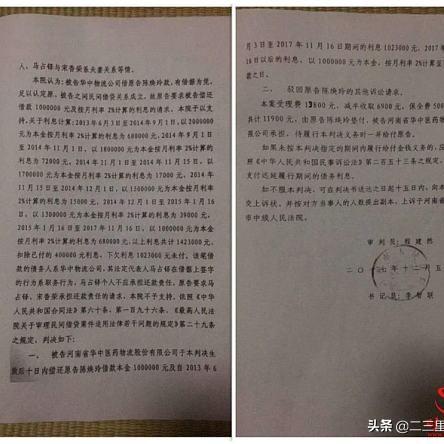 人、马占铎与宋香荣系夫妻关系等情。
本院认为：被告华中物流公司借原告陈焕玲款，有借据为凭，
足以认定原、被告之间民间借贷关系成立。故原告要求被告偿还
借款 1000000 元及按月利率 2%计算的利息的请求，本院予以支
持。关于利息计算：2013 年 6 月 3 日至 2014 年 9 月 1 日，以 2000000
元为本金按月利率 2%计算的利息为 680000 元，2014 年 9 月 1 日
至 2014 年 11 月 1 日，以 1800000 元为本金按月利率 2%计算的
利息为 72000 元，2014 年 11 月 1 日至 2014 年 11 月 15 日，以
1700000 元为本金按月利率 2%计算的利息为 17000 元，2014 年
11 月 15 日至 2014 年 12 月 1 日，以 1500000 元为本金按月利率
2%计算的利息为 15000 元，2014 年 12 月 1 日至 2015 年 1 月 16
日，以 1300000 元为本金按月利率 2%计算的利息为 39000 元，
2015 年 1 月 16 日至 2017 年 11 月 16 日，以 1000000 元为本金
按月利率 2%计算的利息为 680000 元，以上利息共计 1423000 元，
扣除已付的 400000 元利息，下欠利息 1023000 元未付。该笔借
款的债务人系华中物流公司，其法定代表人马占铎在借据上签字
的行为系职务行为，马占铎个人不应承担还款责任。原告要求马
占铎、宋香荣承担还款责任的请求，本院不予支持。依照《中华
人民共和国合同法》第六十条、第一百九十六条，《最高人民法
院关于审理民间借贷案件适用法律若干问题的规定》第二十九条
之规定，判决如下：
一、被告河南省华中医药物流股份有限公司于本判决生
效后十日内偿还原告陈焕玲借款本金 1000000 元及自 2013 年 6
月 3 日至 2017 年 11 月 16 日期间的利息 1023000 元，2017 年
16 日以后的利息，以 1000000 元为本金，按月利率 2%计算
款之日。
二、驳回原告陈焕玲的其他诉讼请求。
本案受理费 13800 元，减半收取 6900 元，保全费 5000
共计 11900 元，由原告陈焕玲垫付，被告河南省华中医药物
有限公司承担，待履行本判决义务时一并给付原告。
如果未按本判决指定的期间履行给付金钱义务的，应
照《中华人民共和国民事诉讼法》第二百五十三条之规定，
支付迟延履行期间的债务利息。
如不服本判决，可在判决书送达之日起十五日内，向本
交上诉状，并按对方当事人的人数提出副本，上诉于河南省
市中级人民法院。
审 判 员：程 建 然
二〇一七年十二月五
书 记 员：李 智 联
头条 @二三里